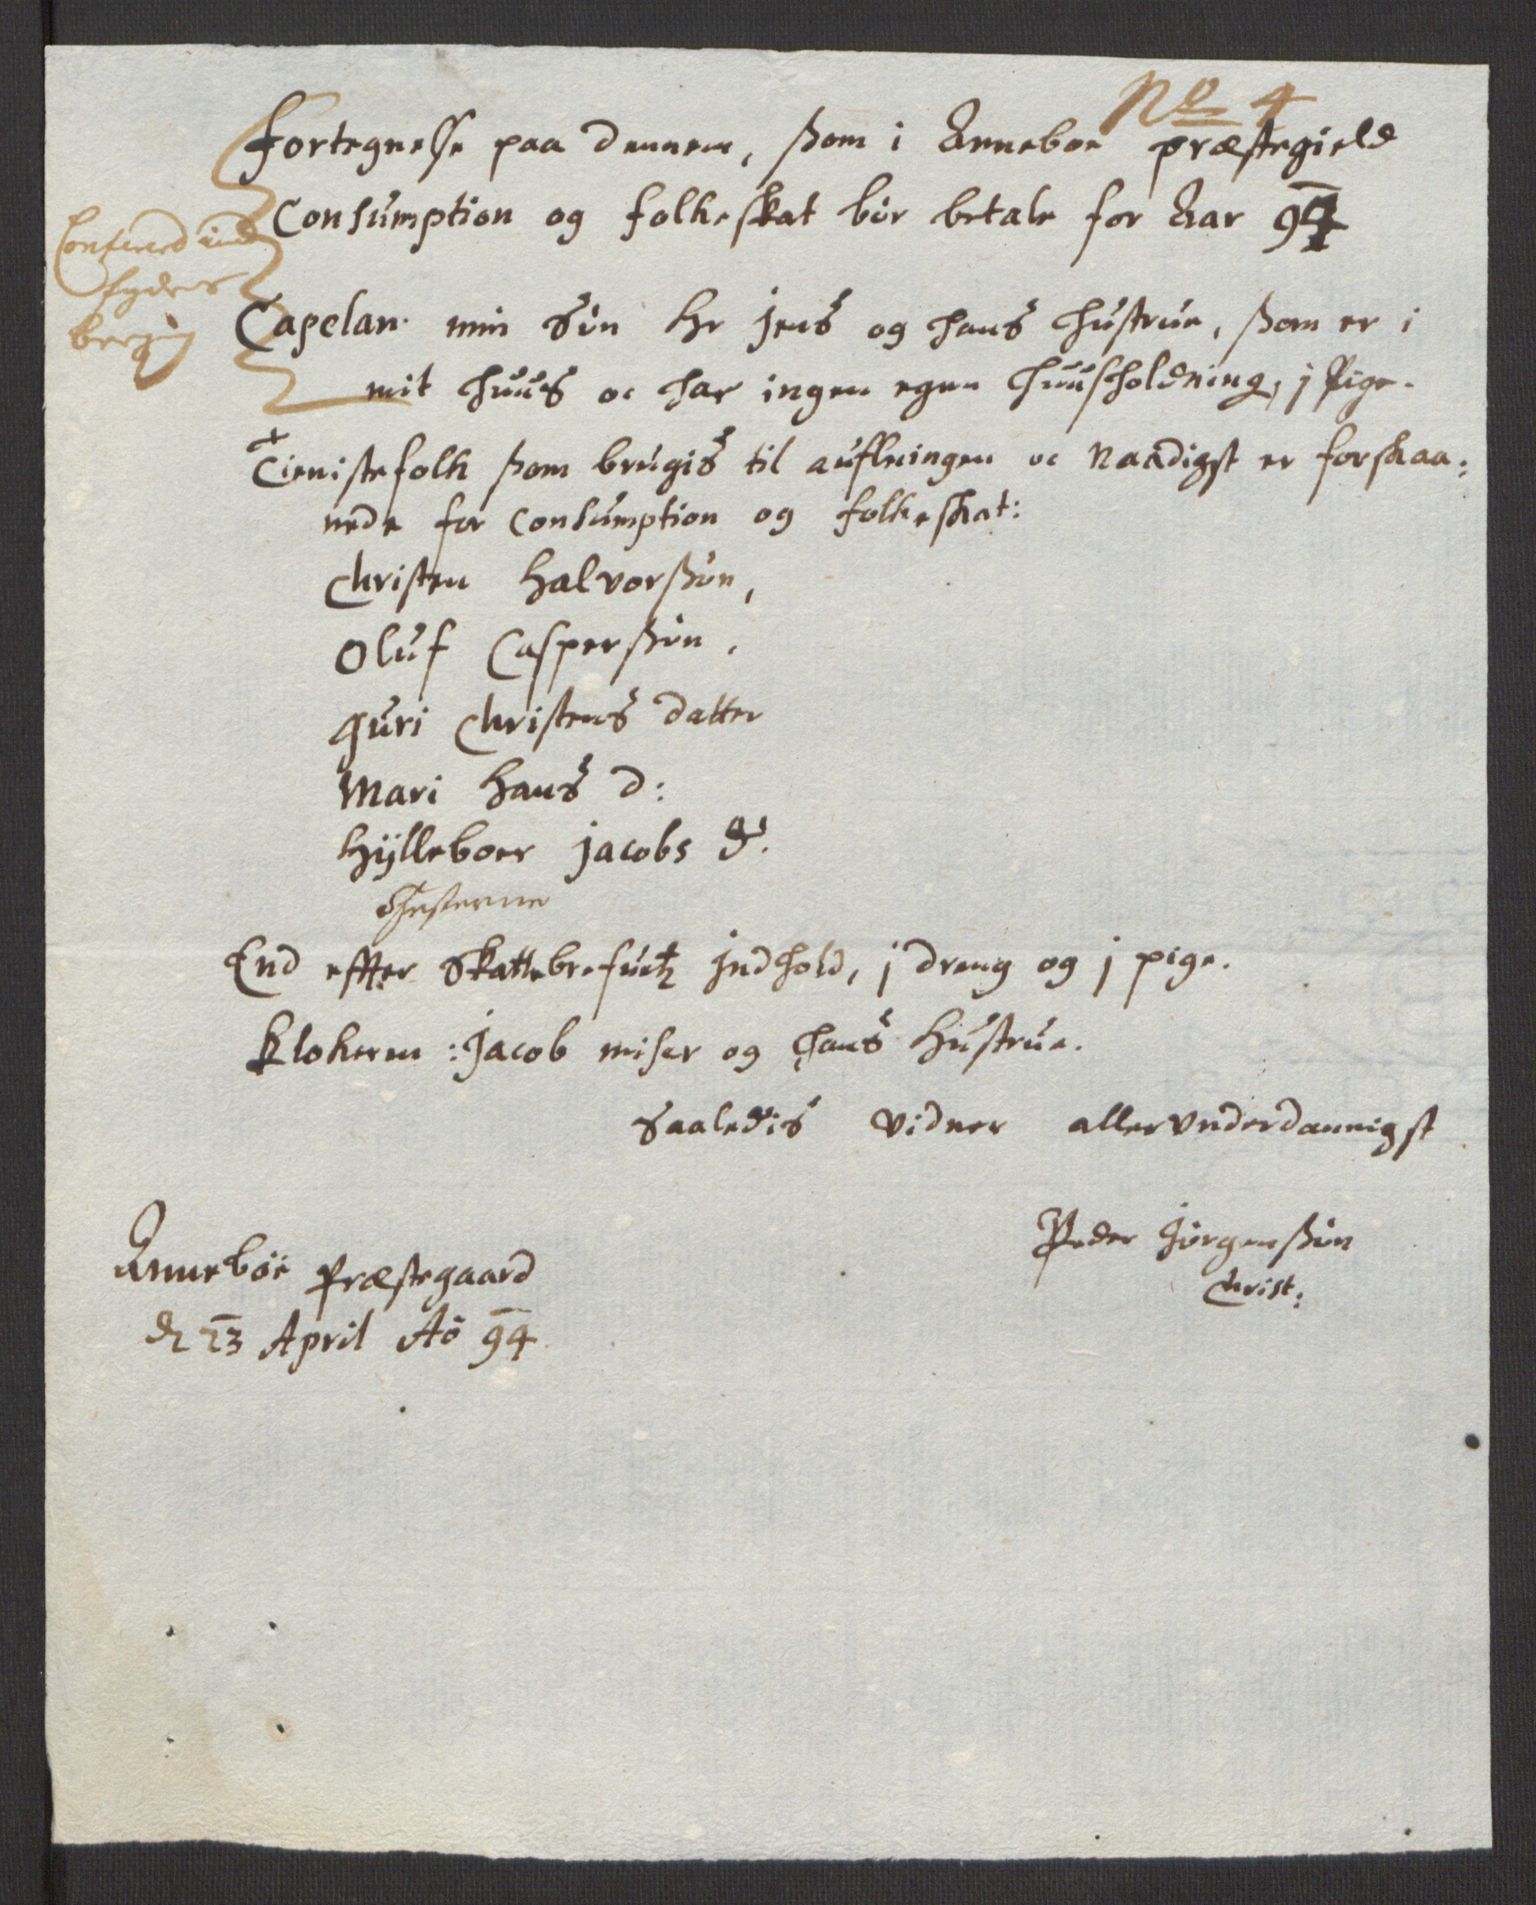 No 4
Fortegnelse paa dennem, som i Anneboe præstegield
Consumption og folkeskat bör betale for Aar 94
Capelan min Sön Hr Jens og hans hustrue, som er i
mit huus oc har ingen egen huusholdning, j Pige.
Tienistefolk som brugis til aufleingen oc naadigst er forskaa:
nede for Consumption og folkeskat:
Christen Halvorssön,
Oluf Casperssön,
Guri Christens datter
Mari Hans D:
Hÿlleboer Jacobs D.
End effter Skattebrefuetz Jndhold, j dreng og j pige.
Klokeren : Jacob miser og hans Hustrue.
Saaledis vidner allervnderdannigst
Peder Jörgenssön
Christ:
Anneböe Præstegaard
d 23 April Ao 94